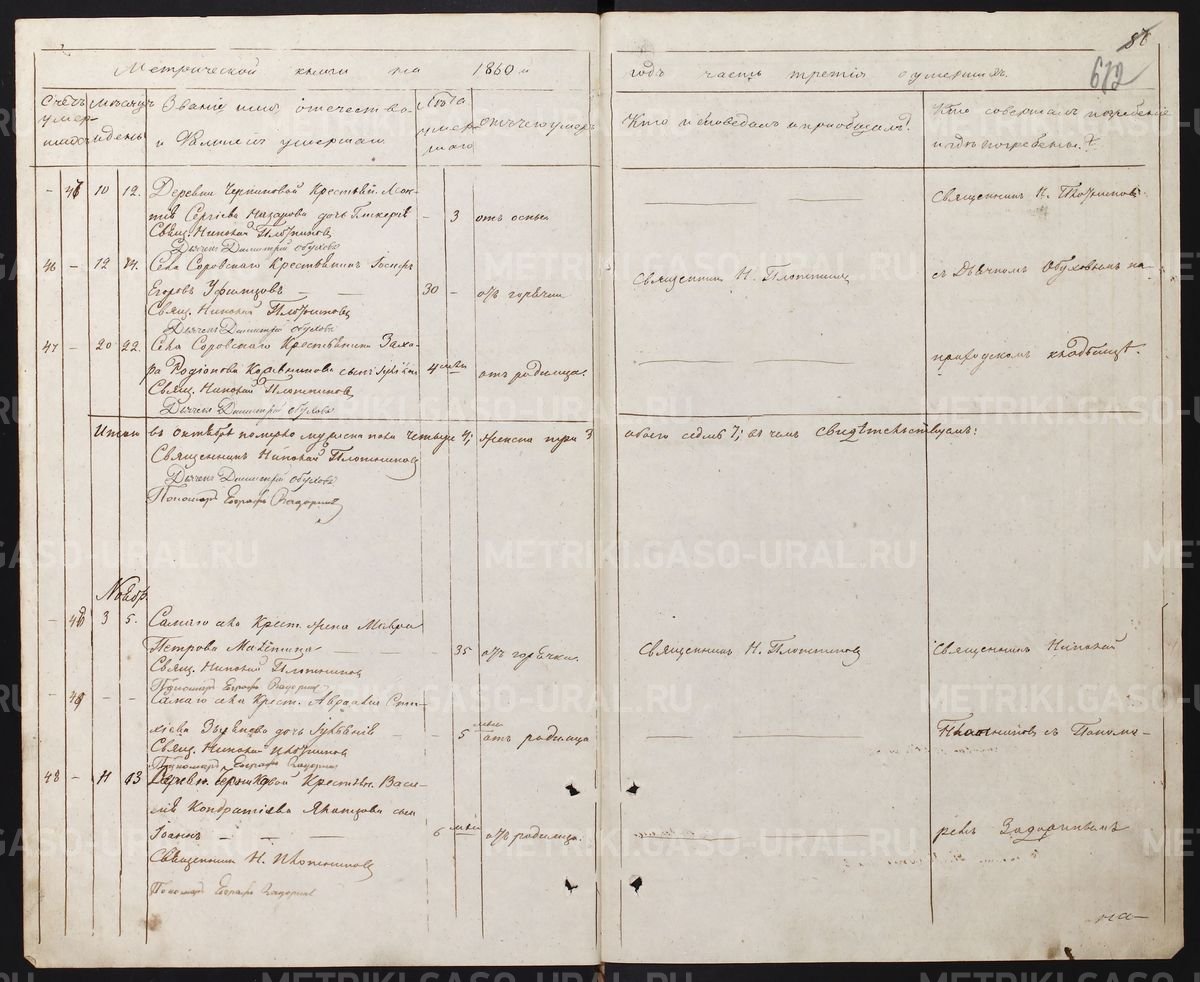 87
672
Метрической книги на 1860 й
годъ часть третія о умершихъ.
Счетъ умершихъ
Мѣсяцъ и день
Званіе, имя, отечество и Фамилія умершаго
Лѣта умершаго
отъ чего умеръ
Кто исповѣдалъ и пріобщалъ?
Кто совершалъ погребеніе и гдѣ погребены?
- 10 12. Деревни Крестьян.
Сергіева Назарова дочь - 3 отъ оспы
Свящ. Николай Плотниковъ
Дьячекъ Димитрій Обуховъ
Священникъ Н. Плотниковъ
46 - 12 14. Села Соровскаго Крестьянинъ
Егоровъ Уфинцовъ 30 - отъ горячки
Свящ. Николай Плотниковъ
Дьячекъ Димитрій Обуховъ
Священникъ Н. Плотниковъ
съ Дьячкомъ Обуховымъ на
47 - 20 22. Села Соровскаго Крестьянина Заха-
ра Родіонова сынъ 4 мѣс. отъ родимца.
Свящ. Николай Плотниковъ
Дьячекъ Димитрій Обуховъ
приходскомъ кладбищѣ.
Итого въ октябрѣ померло мужеска пола четыре 4; женска три 3
обоего седмь 7; въ чемъ свидѣтельствуемъ:
Священникъ Николай Плотниковъ
Дьячекъ Димитрій Обуховъ
Пономарь Евграфъ Задоринъ
Ноябр.
- 3 5. Самаго села Крест. жена Мавра
Петрова 35 отъ горячки.
Свящ. Николай Плотниковъ
Пономарь Евграфъ Задоринъ
Священникъ Н. Плотниковъ
Священникъ Николай
- 49 - - Самаго села Крест.
дочь 5 мѣс. отъ родимца
Свящ. Николай Плотниковъ
Пономарь Евграфъ Задоринъ
Плотниковъ съ Понома-
48 - 11 13 Деревни Крестьян. Васи-
лія Кондратіева сынъ
Іоаннъ 6 мѣс. отъ родимца.
Священникъ Н. Плотниковъ
Пономарь Евграфъ Задоринъ
ремъ Задоринымъ
на
METRIKI.GASO-URAL.RU